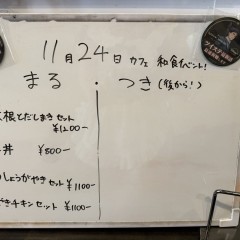 11月24日 カフェ 和食イベント!
まる・つき(後から!)
大根とだしまきセット
¥1200-
丼 ¥800-
しょうがやきセット ¥1100-
やきチキンセット ¥1100-